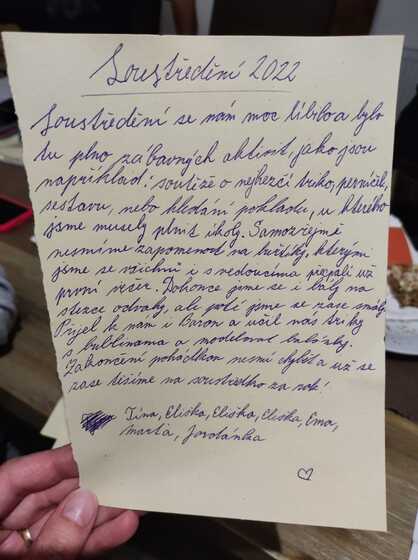 Soustředění 2022
Soustředění se nám moc líbilo a bylo
tu plno zábavných aktivit, jako jsou
například: soutěže o nejhezčí triko, perníček,
sestavu, nebo hledání pokladu, u kterého
jsme musely plnit úkoly. Samozřejmě
nesmíme zapomenout na buřtíky, kterým
jsme se všichni i s vedoucíma přejedli už
první večer. Dokonce jsme se i bály na
stezce odvahy, ale poté jsme se zase smály.
Přijel k nám i Baron a učil nás triky
s bublinama a modelovat balónky.
Zakončení pohádkou nesmí chybět a už se
zase těšíme na soustředko za rok!
Tína, Eliška, Eliška, Eliška, Ema,
Marťa, Jordánka